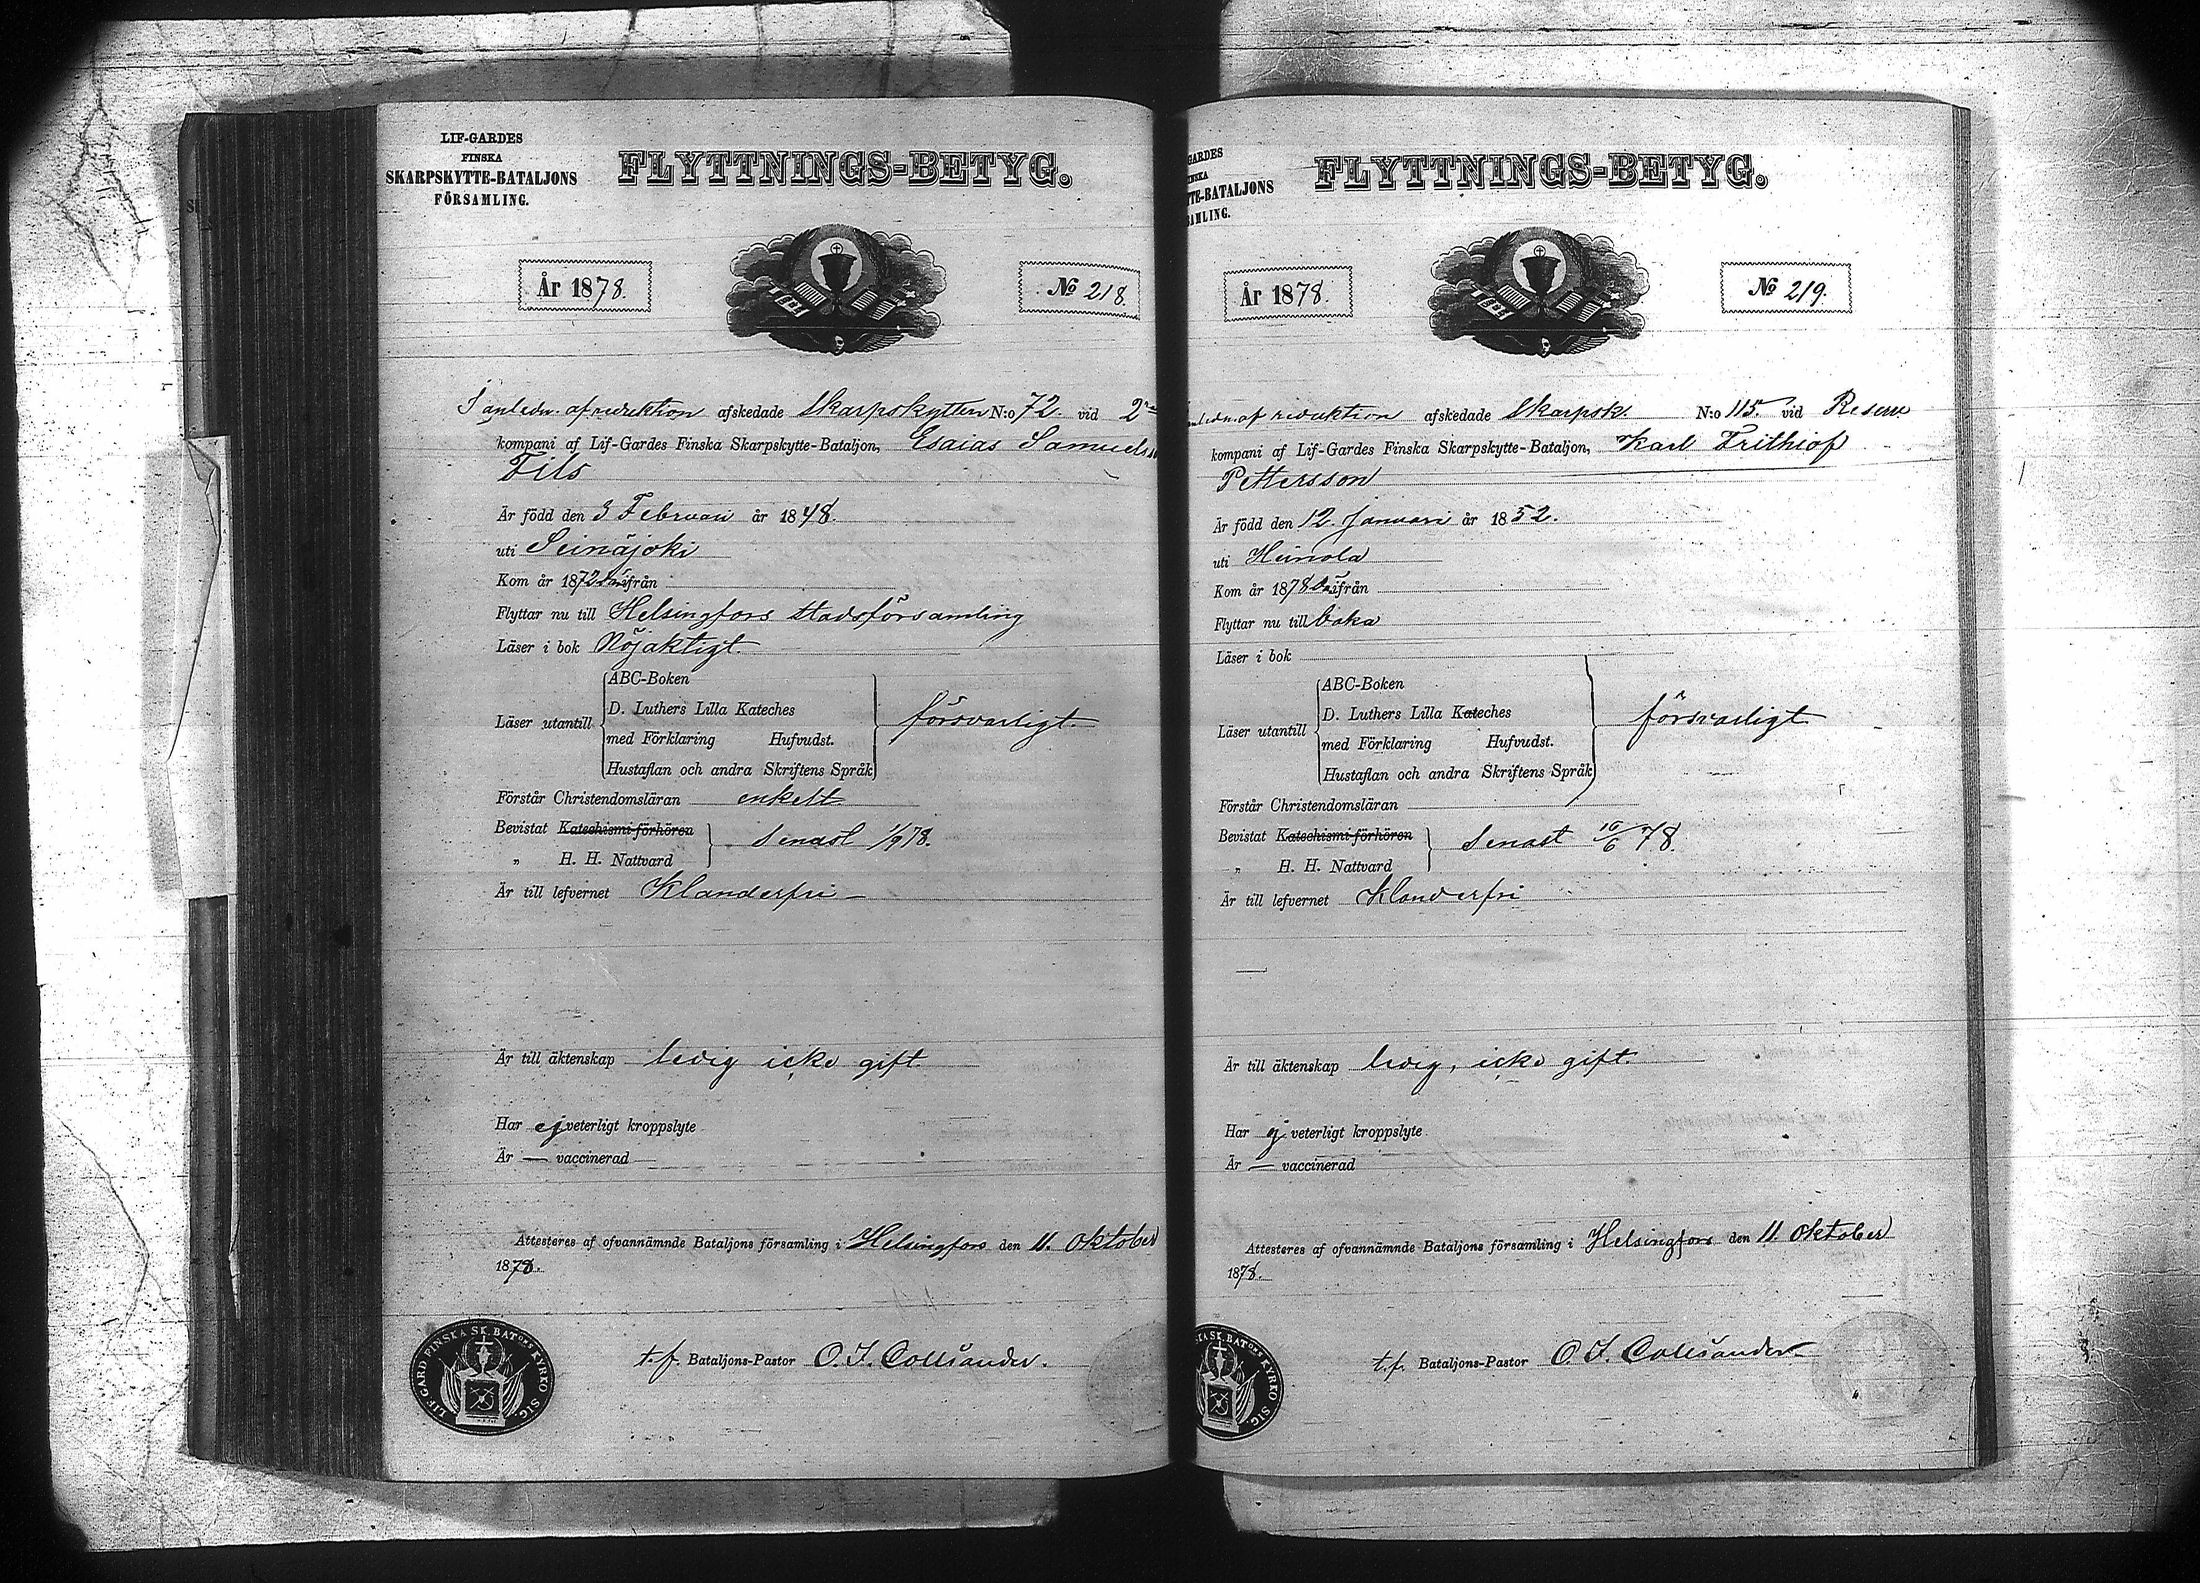 LIF-GARDES
FINSKA
SKARPSKYTTE-BATALJONS
FÖRSAMLING.
FLYTTNINGS-BETYG.
År 1878.
No 218.
I anledn. af reduktion afskedade Skarpskytten N:o 72 vid 2
kompani af Lif-Gardes Finska Skarpskytte-Bataljon, Esaias Samuels
Fils
Är född den 3 Februari år 1848.
uti Seinäjoki
Kom år 1872 från
Flyttar nu till Helsingfors Stadsförsamling
Läser i bok Nöjaktigt
Läser utantill
ABC-Boken
D. Luthers Lilla Kateches
med Förklaring Hufvudst.
Hustaflan och andra Skriftens Språk
försvarligt
Förstår Christendomsläran enkelt
Bevistat Katechismi-förhören
„ H. H. Nattvard
senast 1/9 78.
Är till lefvernet Klanderfri –
Är till äktenskap ledig icke gift.
Har ej veterligt kroppslyte
Är — vaccinerad
Attesteres af ofvannämnde Bataljons församling i Helsingfors den 11. Oktober
1878.
LIF. GARD. FINSKA SK. BAT:ONS KYRKO SIG.
t.f. Bataljons-Pastor O. I. Colliander.
GARDES
INSKA
TTE-BATALJONS
SAMLING.
FLYTTNINGS-BETYG.
År 1878.
No 219.
anledn. af reduktion afskedade Skarpsk. N:o 115 vid Reserv
kompani af Lif-Gardes Finska Skarpskytte-Bataljon, Karl Frithiof
Pettersson
Är född den 12. Januari år 1852.
uti Heinola
Kom år 1878 från
Flyttar nu till
Läser i bok
Läser utantill
ABC-Boken
D. Luthers Lilla Kateches
med Förklaring Hufvudst.
Hustaflan och andra Skriftens Språk
försvarligt
Förstår Christendomsläran
Bevistat Katechismi-förhören
„ H. H. Nattvard
Senast 16/6 78.
Är till lefvernet Klanderfri
Är till äktenskap ledig, icke gift.
Har ej veterligt kroppslyte
Är — vaccinerad
Attesteres af ofvannämnde Bataljons församling i Helsingfors den 11 Oktober
1878.
SKA SK. BAT:ONS KYRKO SIG.
t.f. Bataljons-Pastor O. I. Colliander